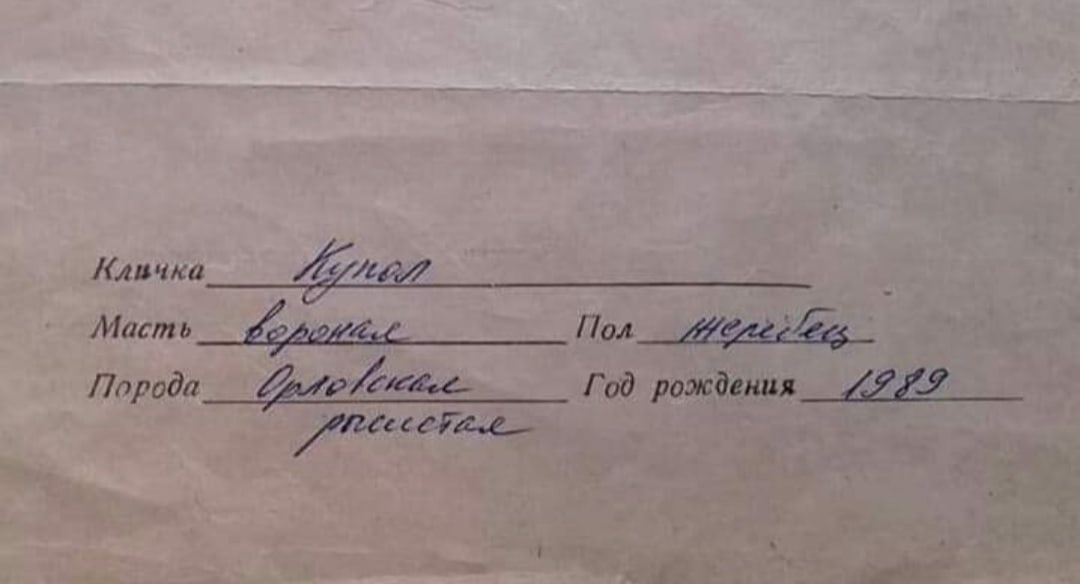 Кличка Купол
Масть вороная Пол жеребец
Порода Орловская Год рождения 1989
рысистая